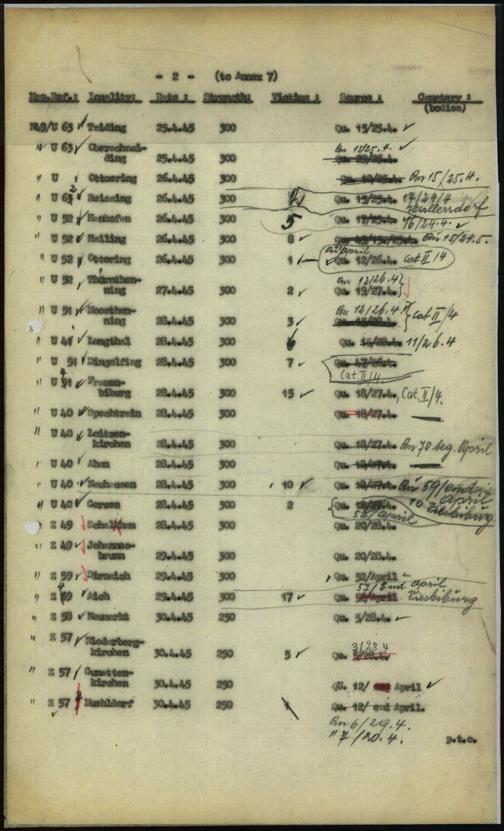 - 2 - (to Annex 7)
Map.Ref.: Locality: Date: Strength: Victims: Source: Cemetery:
(bodies)
N49/U 63 Teiding 25.4.45 300 Qu. 15/25.4.
" U 63 Oberschnei-
ding 25.4.45 300
" U Ottmering 26.4.45 300 An 15/25.4.
" U 63 Reissing 26.4.45 300 Qu. 15/25.4. 14/24/4
" U 52 Hankofen 26.4.45 300 5 Qu. 17/25.4. 16/24.4.
" U 52 Hailing 26.4.45 300 6 An 15/24.5.
" U 52 Ottering 26.4.45 300 1 Qu. 12/26.4 Cat II/4
" U 52 Thürnthen-
ning 27.4.45 300 2 Qu. 19/27.4. An 12/26.4
" U 51 Moosthen-
ning 28.4.45 300 3 An 12/26.4 Cat II/4
" U 41 Lengthal 28.4.45 300 6 Qu. 11/26.4
" U 51 Dingolfing 28.4.45 300 7 Qu. 17/26.4.
Cat II/4.
" U 41 Frauen-
biburg 28.4.45 300 15 Qu. 18/27.4, Cat. II/4.
" U 40 Spechtrein 28.4.45 300 Qu. 18/27.4.
" U 40 Loitzen-
kirchen 28.4.45 300 Qu. 18/27.4. An 70 beg. April
" U 40 Aham 28.4.45 300 Qu. 18/27.4.
" U 40 Neuhausen 28.4.45 300 10 Qu. 18/27.4. An 59/end in April
" U 40 Gerzen 28.4.45 300 2 Qu. 18/27.4. To Vilsbiburg
" Z 49 28.4.45 300 Qu. 20/28.4.
" Z 49 Johannes-
brunn 29.4.45 300 Qu. 20/28.4.
" Z 59 Dirnaich 29.4.45 300 Qu. 52/April
" Z Aich 29.4.45 300 17 57/End April Vilsbiburg
" Z 58 Neumarkt 30.4.45 250 Qu. 5/28.4.
" Z 57 Niederberg-
kirchen 30.4.45 250 5 Qu. 3/28.4
" Z 57 Gumatten-
kirchen 30.4.45 250 Qu. 12/ end April
" Z 57 Muehldorf 30.4.45 250 Qu. 12/ end April.
An 6/29.4.
" 7/20.4.
p.t.o.